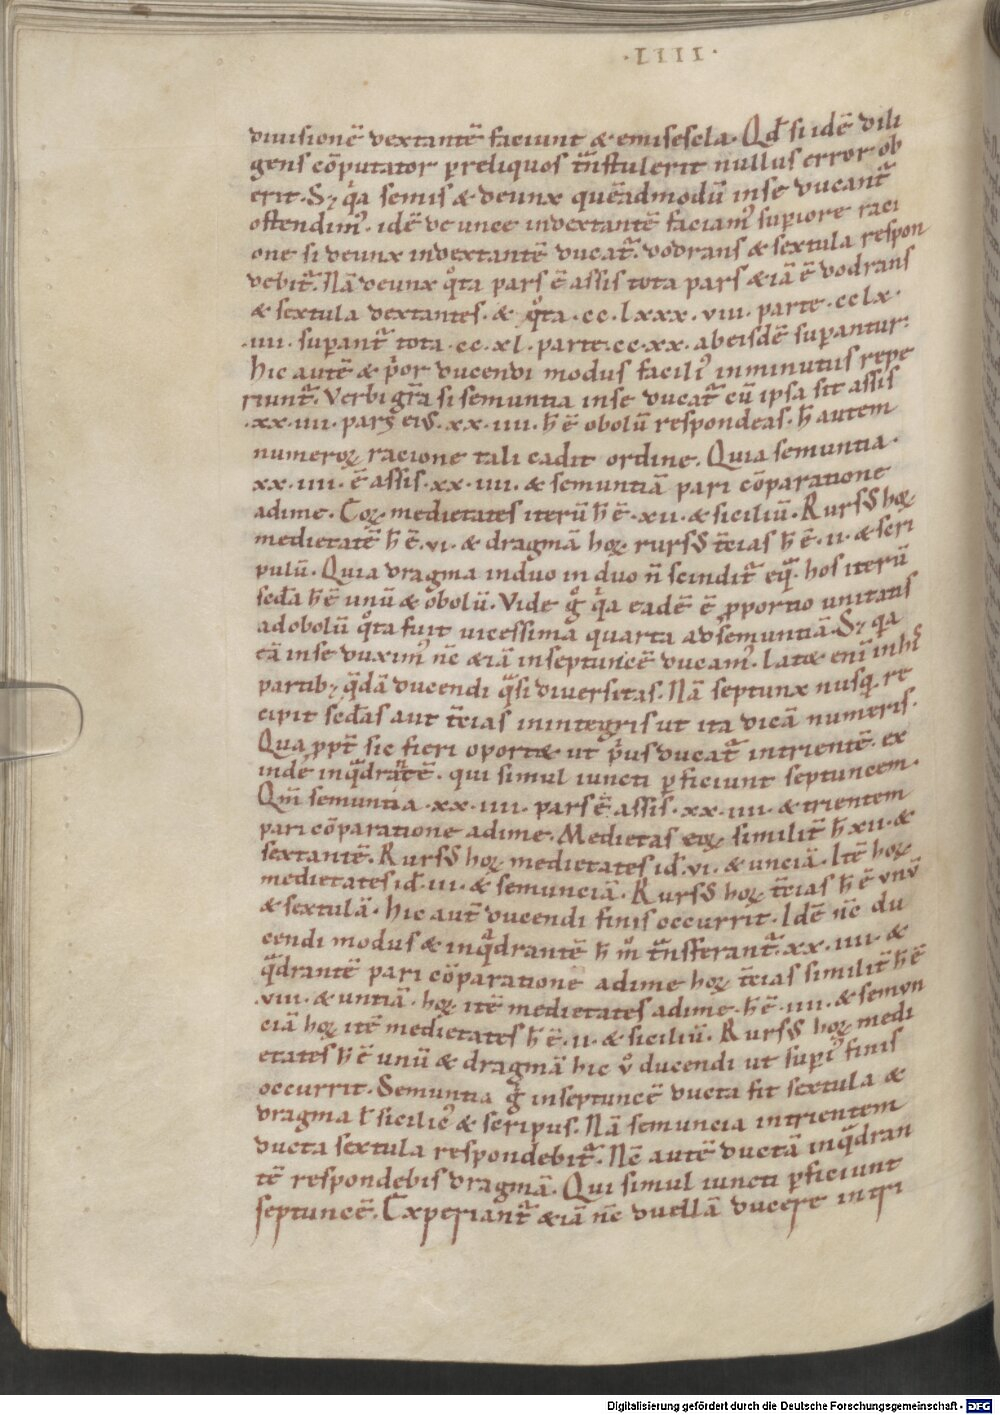 ·LIIII·
diuisionē dextantē faciunt & emisescla. Qđ si idē dili
gens cōputator p reliquos t̄nstulerit nullus error ob
erit. Sꝫ qͣa semis & deunx quēadmodū in se ducant᷑
ostendimꝰ. idē deunce in dextantē faciamꝰ supiore raci
one si deunx in dextantē ducat᷑. dodrans & sextula respon
debit᷑. Nā deunx qͦta pars ē assis tota pars & iā ē dodrans
& sextula dextantes. & qͦta .cc.lxxx.viii. parte .cc lx.
.iiii. supant᷑ tota .cc.xl. parte .cc.xx. ab eisdē supantur.
Hic autē & pͥor ducendi modus faciliꝰ in minutiis repe
riunt᷑. Verbi gr̄a si semuntia in se ducat᷑ cū ipsa sit assis
.xx.iiii. pars eiꝰ .xx.iiii. ħ ē obolū respondeas. ħ autem
numeroꝝ racione tali cadit ordine. Quia semuntia.
xx.iiii. ē assis .xx.iiii. & semuntiā pari cōparatione
adime. Eoꝝ medietates iterū ħ ē .xii. & siciliū. Rursꝰ hoꝝ
medietatē ħ ē .vi. & dragmā hoꝝ rursꝰ t̄cias ħ ē .ii. & scri
pulū. Quia dragma in duo in duo n̄ scindit᷑ eq̄. hos iterū
secda ħ ē unū & obolū. Vide g̊ qͣa eadē ē pportio unitatis
ad obolū qͦta fuit uicessima quarta ad semuntiā. Sꝫ qͣa
eā in se duximꝰ nc̄ & iā in septuncē ducamꝰ. Latæ eni in hiꝰ
partibꝫ qͣdā ducendi qͣsi diuersitas. Nā septunx nusq̄ re
cipit secdas aut t̄cias in integris ut ita dicā numeris.
Qua ppt̄ sic fieri oportæ ut pͥus ducat᷑ in trientē. ex
inde in qͣdrantē. qui simul iuncti pficiunt septuncem.
Qm̄ semuntia .xx.iiii. pars ē assis .xx.iiii. & trientem
pari cōparatione adime. Medietas eoꝝ similit̄ ħ xii. &
sextantē. Rursꝰ hoꝝ medietates iđ .vi. & unciā. Itē hoꝝ
medietates iđ .iii. & semunciā. Rursꝰ hoꝝ t̄cias ħ ē unū
& sextulā. Hic aut̄ ducendi finis occurrit. Idē nc̄ du
cendi modus & in qͣdrantē ħ mͦ t̄nsferant᷑ .xx.iiii. &
qͣdrantē pari cōparatione adime hoꝝ t̄cias similit̄ ħ ē
.viii. & untiā. hoꝝ itē medietates adime. ħ ē .iiii. & semun
ciā hoꝝ itē medietates ħ ē .ii. & siciliū. Rursꝰ hoꝝ medi
etates ħ ē unū & dragmā hic uͦ ducendi ut supiꝰ finis
occurrit. Semuntia g̊ in septuncē ducta fit sextula &
dragma ł siciliꝰ & scripus. Nā semuncia in trientem
ducta sextula respondebit᷑. Nc̄ autē ductā in qͣdran
tē respondebis dragmā. Qui simul iuncti pficiunt
septuncē. Experiant᷑ & iā nc̄ duellā ducere in tri
Digitalisierung gefördert durch die Deutsche Forschungsgemeinschaft - DFG